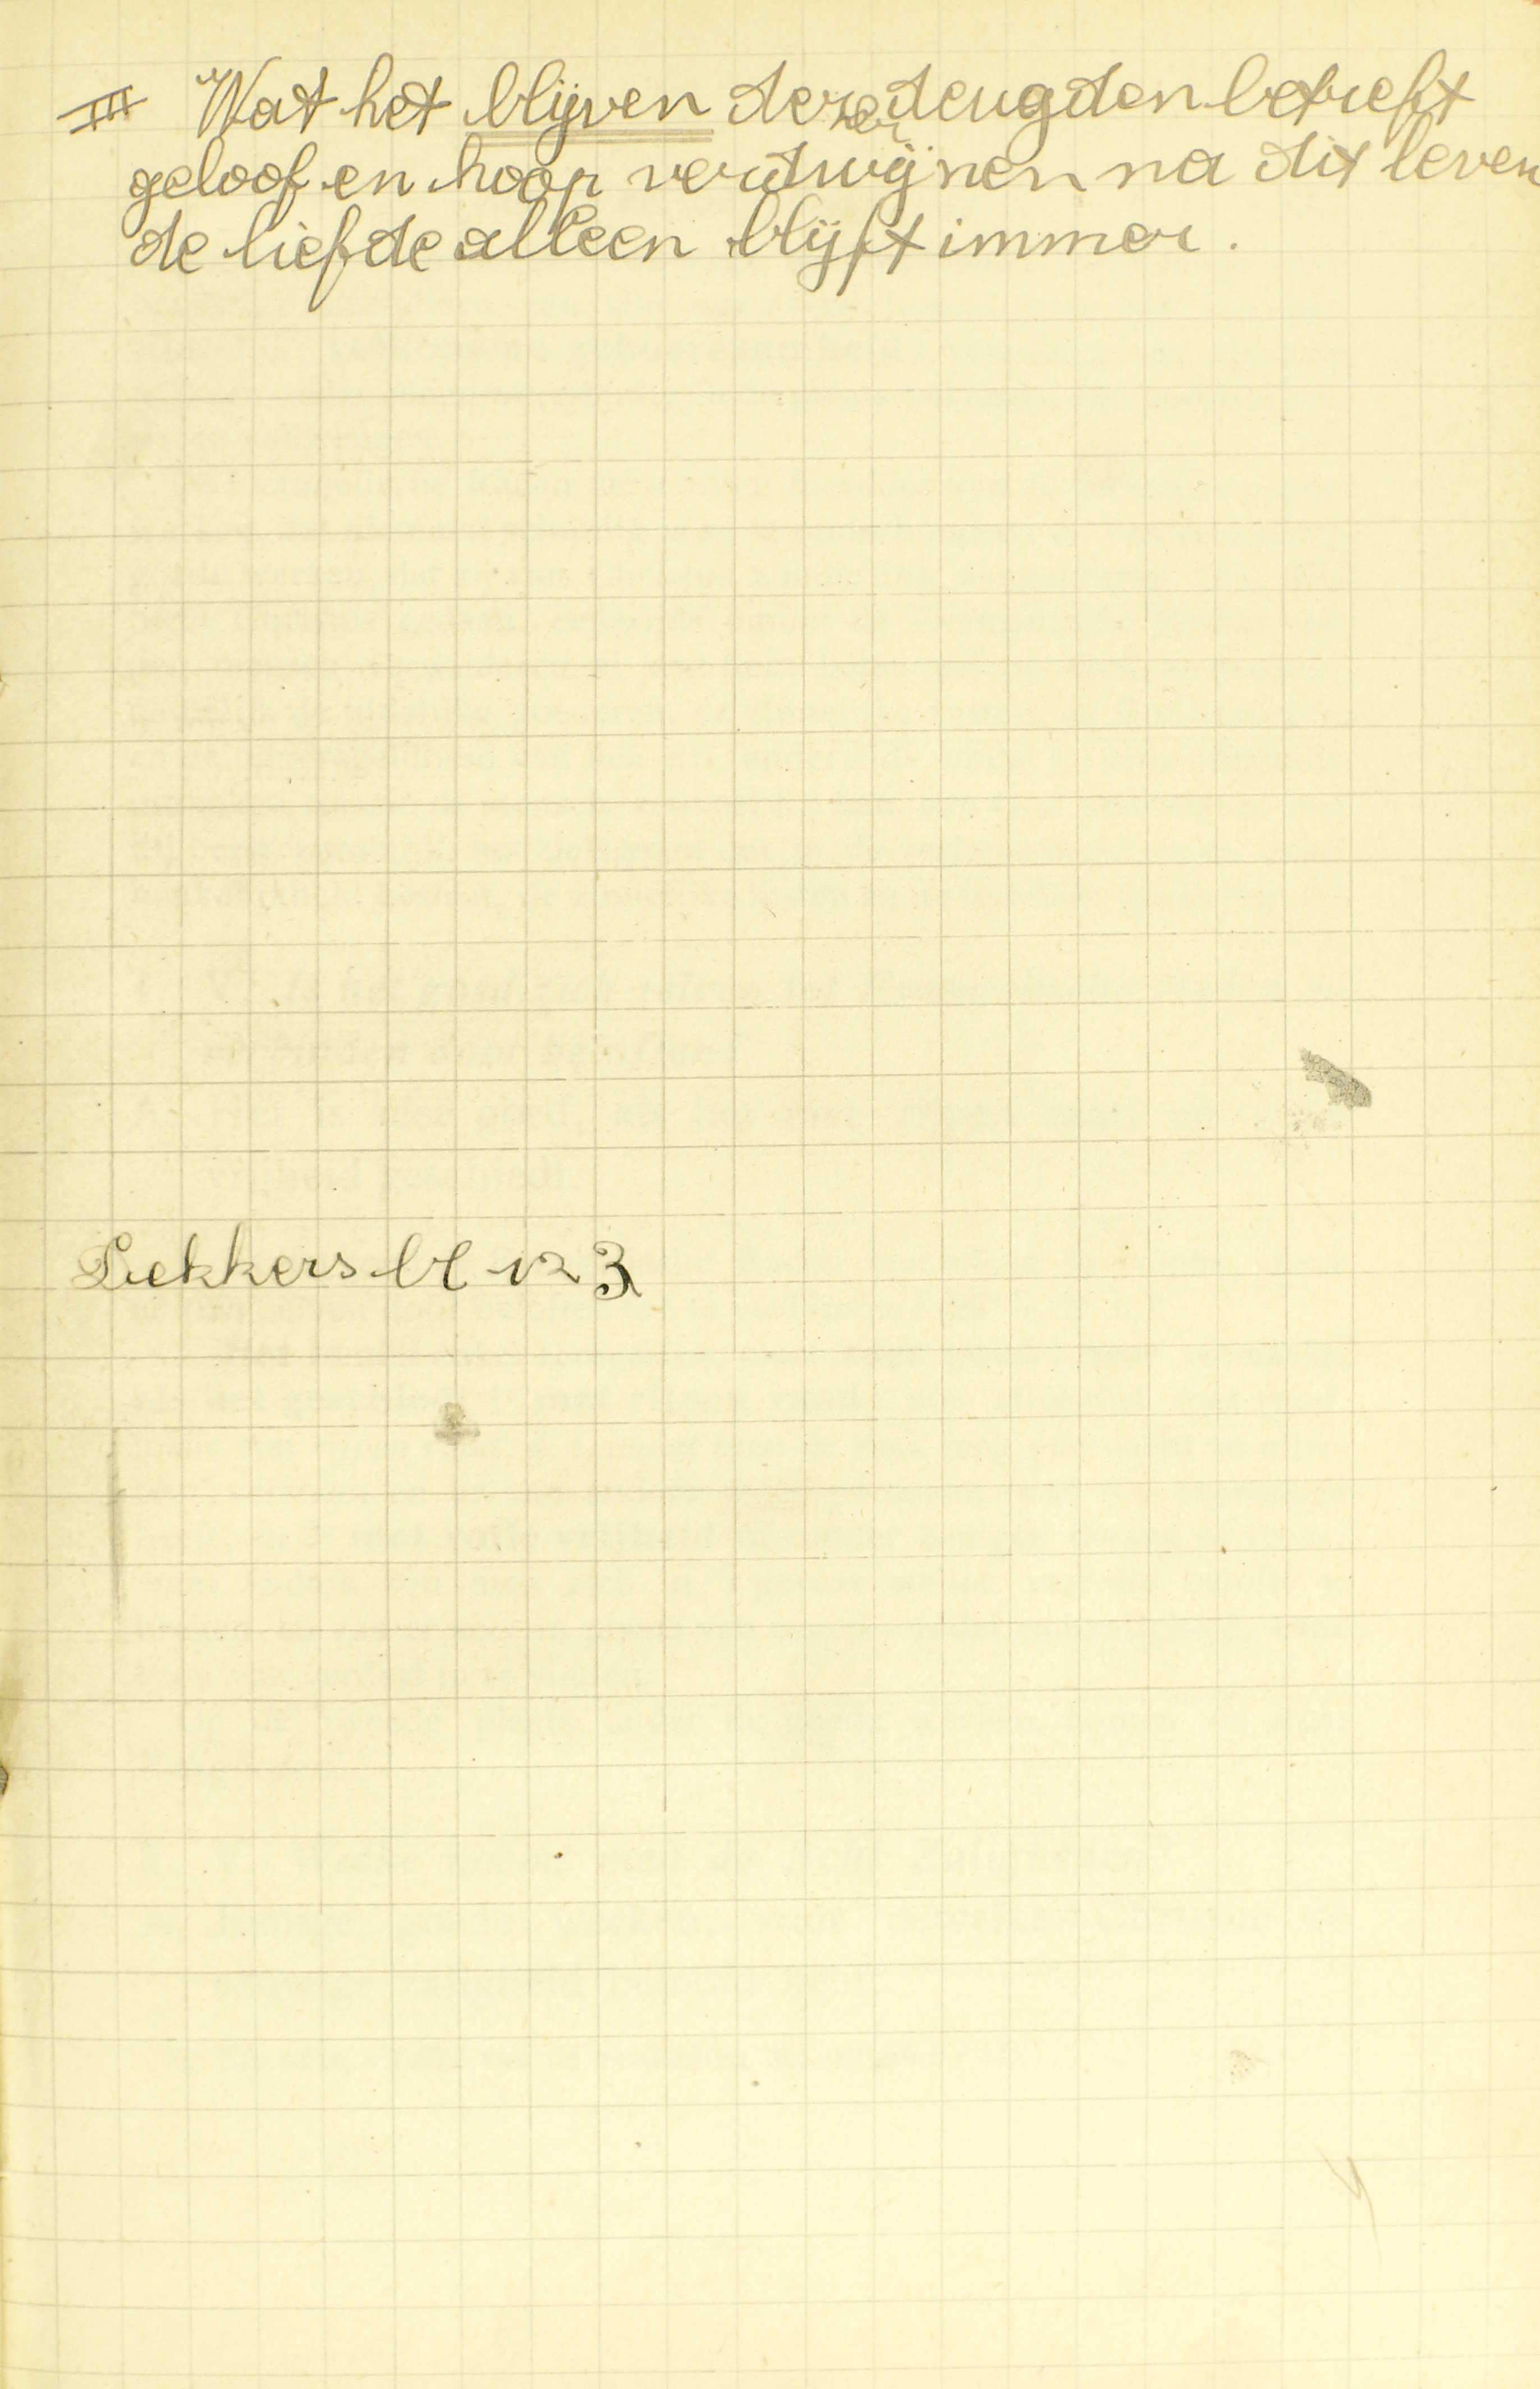 III Wat het blijven dezer deugden betreft
geloof en hoop verdwijnen na dit leven
de liefde alleen blijft immer.
Lekkers bl 123